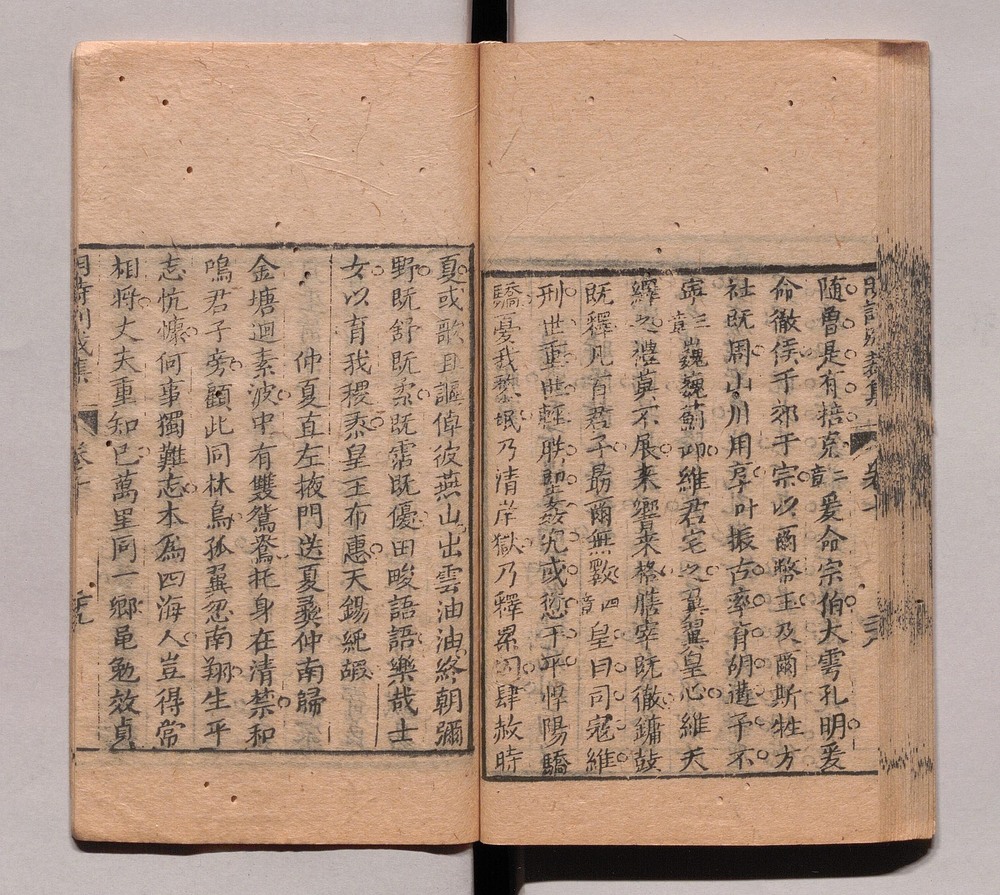 明詩別裁集 卷十
隨曾是有掊克二章爰命宗伯大雩孔明爰
命徹侯于郊于宗以爾幣玉及爾斯牲方
社既周山川用序叶振古率育胡遘予不
寧三章巍巍薊邱維君宅之翼翼皇心維天
繹之禮莫不展来饗来格膳宰既徹鏞鼓
既釋凡百君子最爾無斁四章皇曰司寇維
刑世重世輕胅即姦宄或愆于平悍陽驕
驕憂我黎氓乃清岸獄乃釋累囚肆赦時
夏或歌且謳倬彼燕山出雲油油終朝彌
野既舒既柔既霑既優田畯語語樂哉士
女以育我稷黍皇王布惠天錫純嘏
仲夏直左掖門送夏彝仲南歸
金塘迴素波中有雙鴛鴦托身在清禁和
鳴君子旁顧此同林鳥孤翼忽南翔生平
志忼慷何事獨難志本為四海人豈得常
相將丈夫重知已萬里同一鄉黽勉效貞
明詩別裁集 卷十